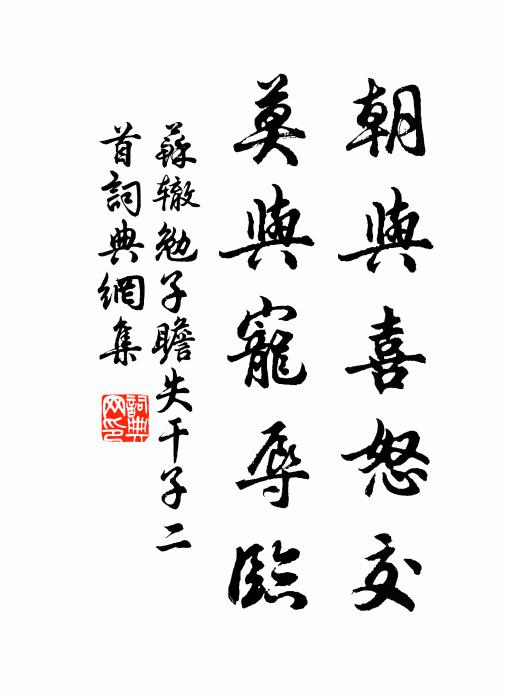 朝與喜怒交
莫與寵辱臨
蘇辙勉子瞻失干子二
首詞典網集
詞典
网印